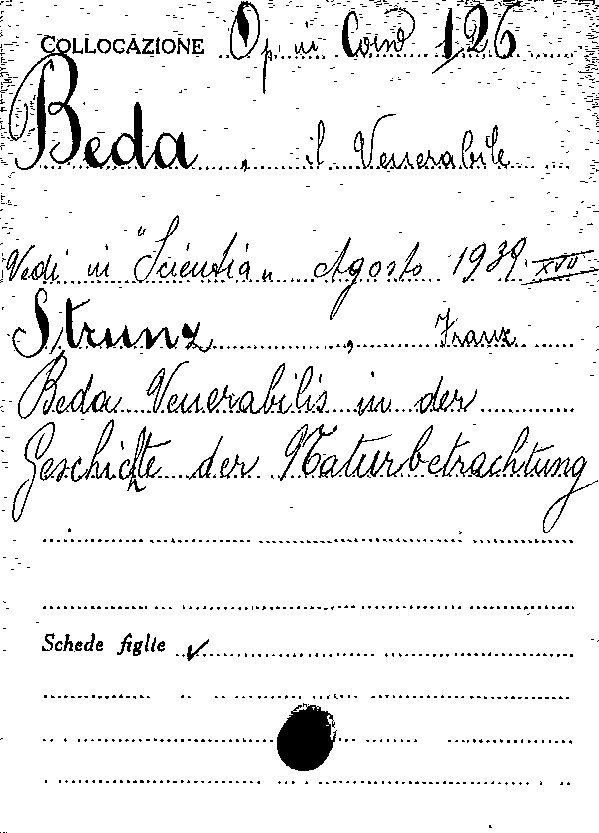 COLLOCAZIONE Op. in Cons 126
Beda, il Venerabile
Vedi in "Scientia" Agosto 1939. XVII
Strunz, Franz
Beda Venerabilis in der
Geschichte der Naturbetrachtung
Schede figlie ✓